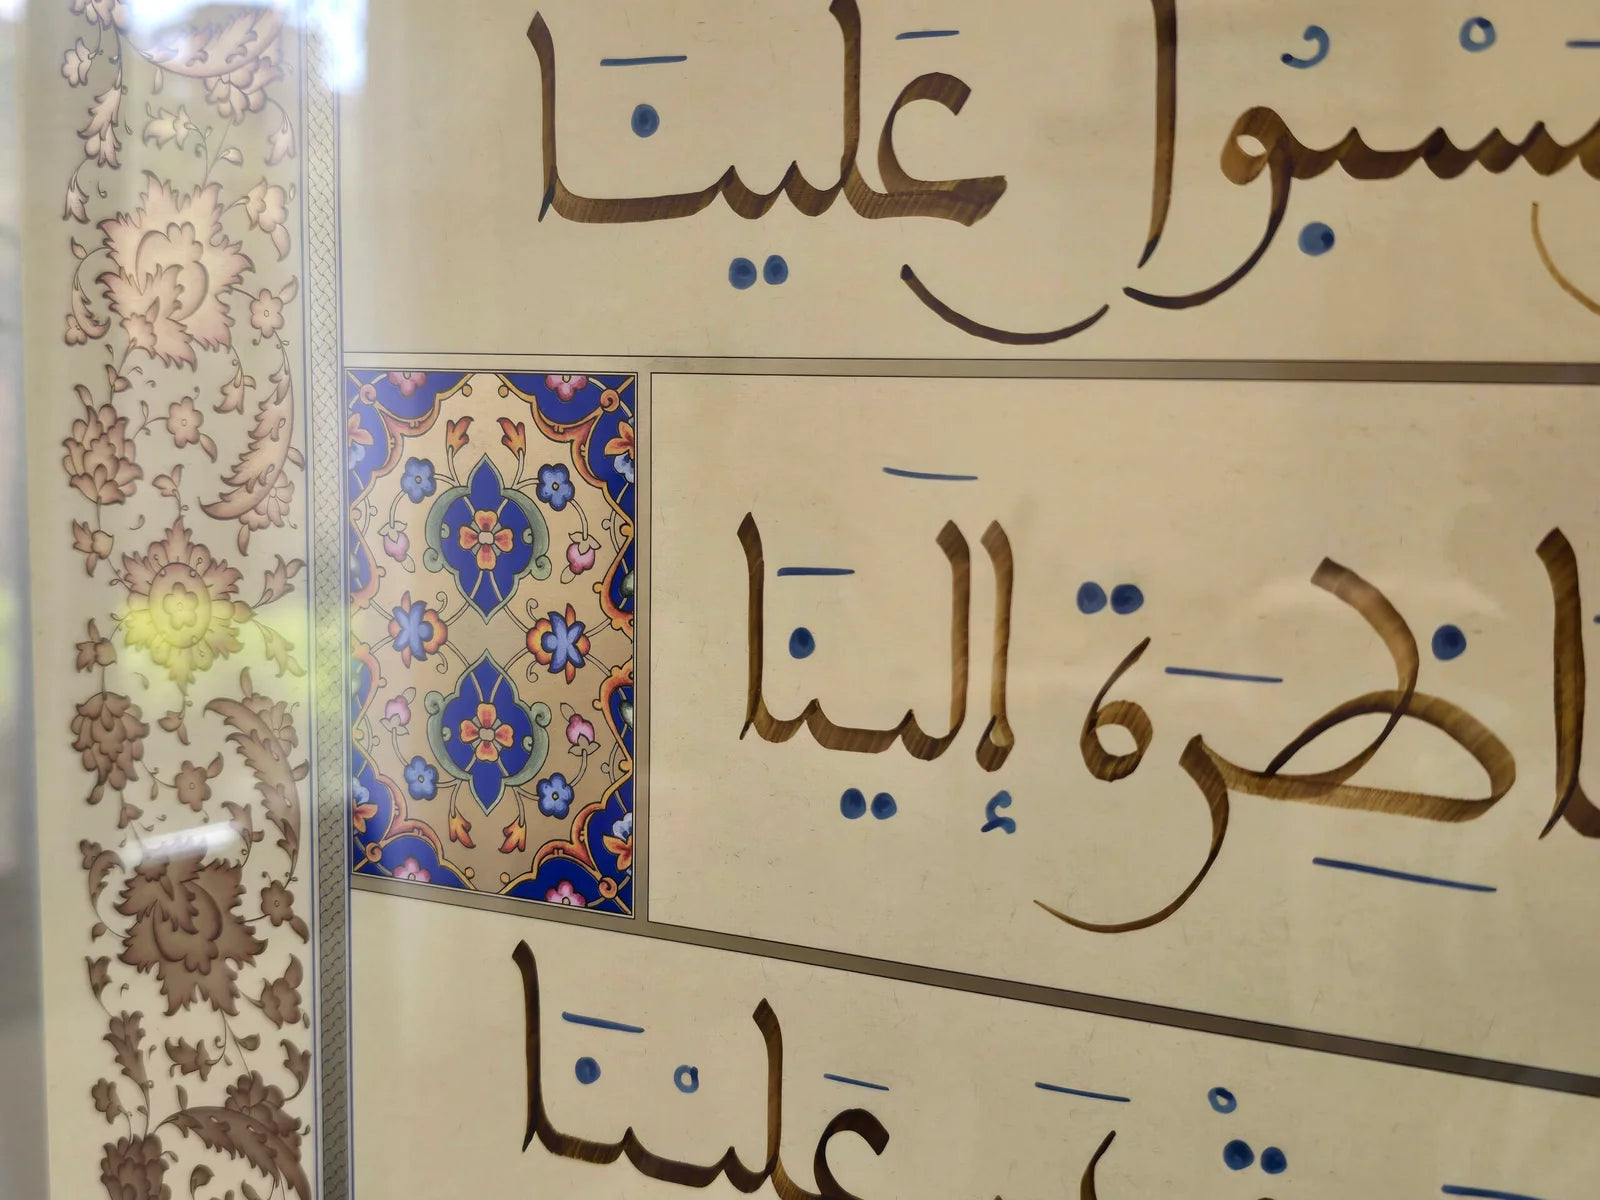 سبُوا عَلَينَا
اظِرَة إلَينَا
عَلَيْنَا